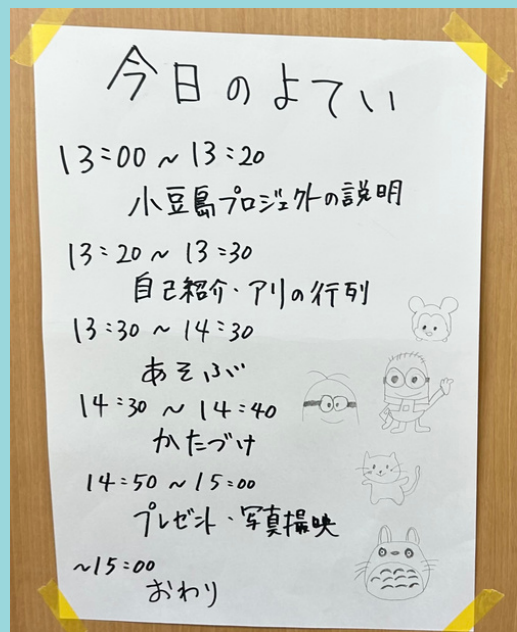 今日のよてい
13:00 ~ 13:20
小豆島プロジェクトの説明
13:20 ~ 13:30
自己紹介・アリの行列
13:30 ~ 14:30
あそぶ
14:30 ~ 14:40
かたづけ
14:50 ~ 15:00
プレゼント・写真撮映
~15:00
おわり